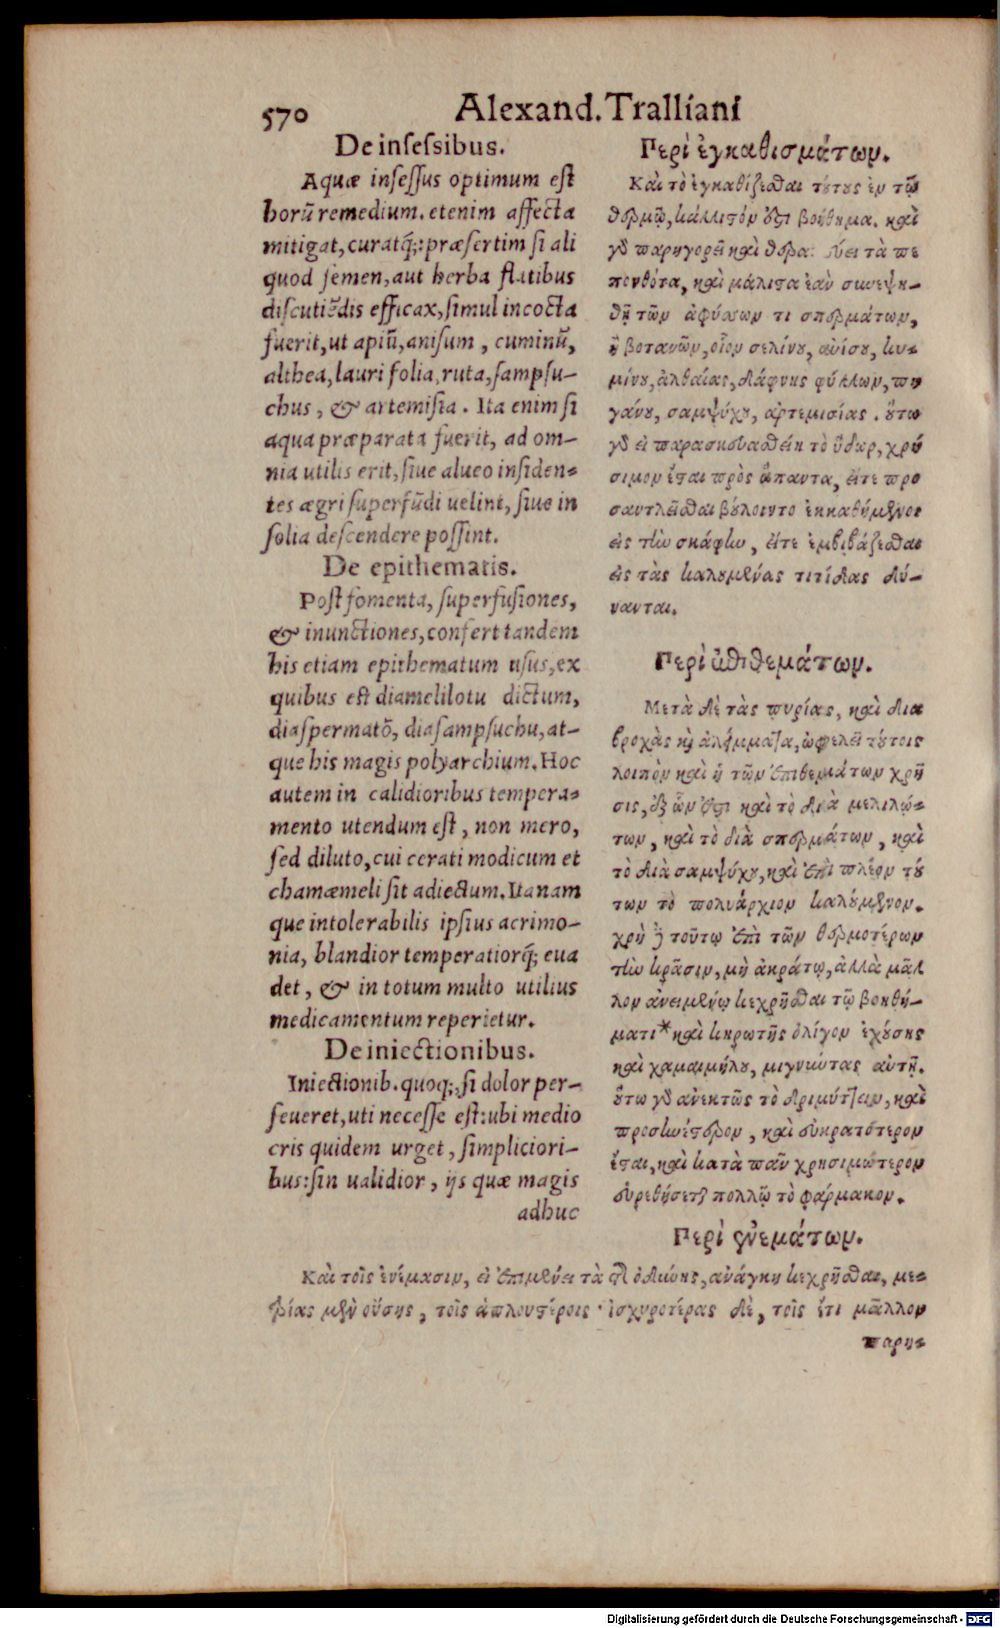 570 Alexand. Tralliani
De insessibus.
Aquæ insessus optimum est
horũ remedium. etenim affecta
mitigat, curatq́;: præsertim si ali
quod semen, aut herba flatibus
discutiẽdis efficax, simul incocta
fuerit, ut apiũ, anisum, cuminũ,
althea, lauri folia, ruta, sampsu-
chus, & artemisia. Ita enim si
aqua præparata fuerit, ad om-
nia utilis erit, siue alueo insiden-
tes ægri superfũdi uelint, siue in
solia descendere possint.
De epithematis.
Post fomenta, superfusiones,
& inunctiones, confert tandem
his etiam epithematum usus, ex
quibus est diamelilotu dictum,
diaspermatõ, diasampsuchu, at-
que his magis polyarchium. Hoc
autem in calidioribus tempera-
mento utendum est, non mero,
sed diluto, cui cerati modicum et
chamæmeli sit adiectum. Ita nam
que intolerabilis ipsius acrimo-
nia, blandior temperatiorq́; eua
det, & in totum multo utilius
medicamentum reperietur.
De iniectionibus.
Iniectionib. quoq;, si dolor per-
seueret, uti necesse est: ubi medio
cris quidem urget, simpliciori-
bus: sin ualidior, ijs quæ magis
adhuc
Περὶ ἐγκαθισμάτων.
Καὶ τὸ ἐγκαθίζεσθαι τούτους ἐν τῷ
θερμῷ, κάλλιστόν ἐστι βοήθημα. καὶ
γὰρ παρηγορεῖ καὶ θερα ύει τὰ πε
πονθότα, καὶ μάλιστα ἐὰν συνεψη-
θῇ τῶν ἀφύσων τι σπερμάτων,
ἢ βοτανῶν, οἷον σελίνου, ἀνίσου, κυ-
μίνου, ἀλθαίας, δάφνης φύλλων, πη
γάνου, σαμψύχου, ἀρτεμισίας. οὕτω
γὰρ εἰ παρασκευασθείη τὸ ὕδωρ, χρή
σιμον ἔσται πρὸς ἅπαντα, εἴτε προ
σαντλεῖσθαι βούλοιντο ἐκκαθήμενοι
εἰς τὴν σκάφην, εἴτε ἐμβιβάζεσθαι
εἰς τὰς καλουμένας τιτίδας δύ-
νανται.
Περὶ ἐπιθεμάτων.
Μετὰ δὲ τὰς πυρίας, καὶ δια
βροχὰς καὶ ἀλείμματα, ὠφελεῖ τούτοις
λοιπὸν καὶ ἡ τῶν ἐπιθεμάτων χρῆ
σις, ἐξ ὧν ἐστι καὶ τὸ διὰ μελιλώ-
των, καὶ τὸ διὰ σπερμάτων, καὶ
τὸ διὰ σαμψύχου, καὶ ἐπὶ πλέον τού
των τὸ πολυάρχιον καλούμενον.
χρὴ δὲ τούτῳ ἐπὶ τῶν θερμοτέρων
τὴν κρᾶσιν, μὴ ἀκράτῳ, ἀλλὰ μᾶλ
λον ἀνειμένῳ κεχρῆσθαι τῷ βοηθή-
ματι* καὶ κηρωτῆς ὀλίγον ἐχούσης
καὶ χαμαιμήλου, μιγνύντας αὐτῇ.
οὕτω γὰρ ἀνεκτῶς τὸ δριμύττειν, καὶ
προσηνέστερον, καὶ εὐκρατότερον
ἔσται, καὶ κατὰ πᾶν χρησιμώτερον
εὑρεθήσεται πολλῷ τὸ φάρμακον.
Περὶ ἐνεμάτων.
Καὶ τοῖς ἐνέμασιν, εἰ ἐπιμένει τὰ τῆς ὀδύνης, ἀνάγκη κεχρῆσθαι, με-
τρίας μὲν οὔσης, τοῖς ἁπλουστέροις· ἰσχυροτέρας δὲ, τοῖς ἔτι μᾶλλον
παρη-
Digitalisierung gefördert durch die Deutsche Forschungsgemeinschaft - DFG